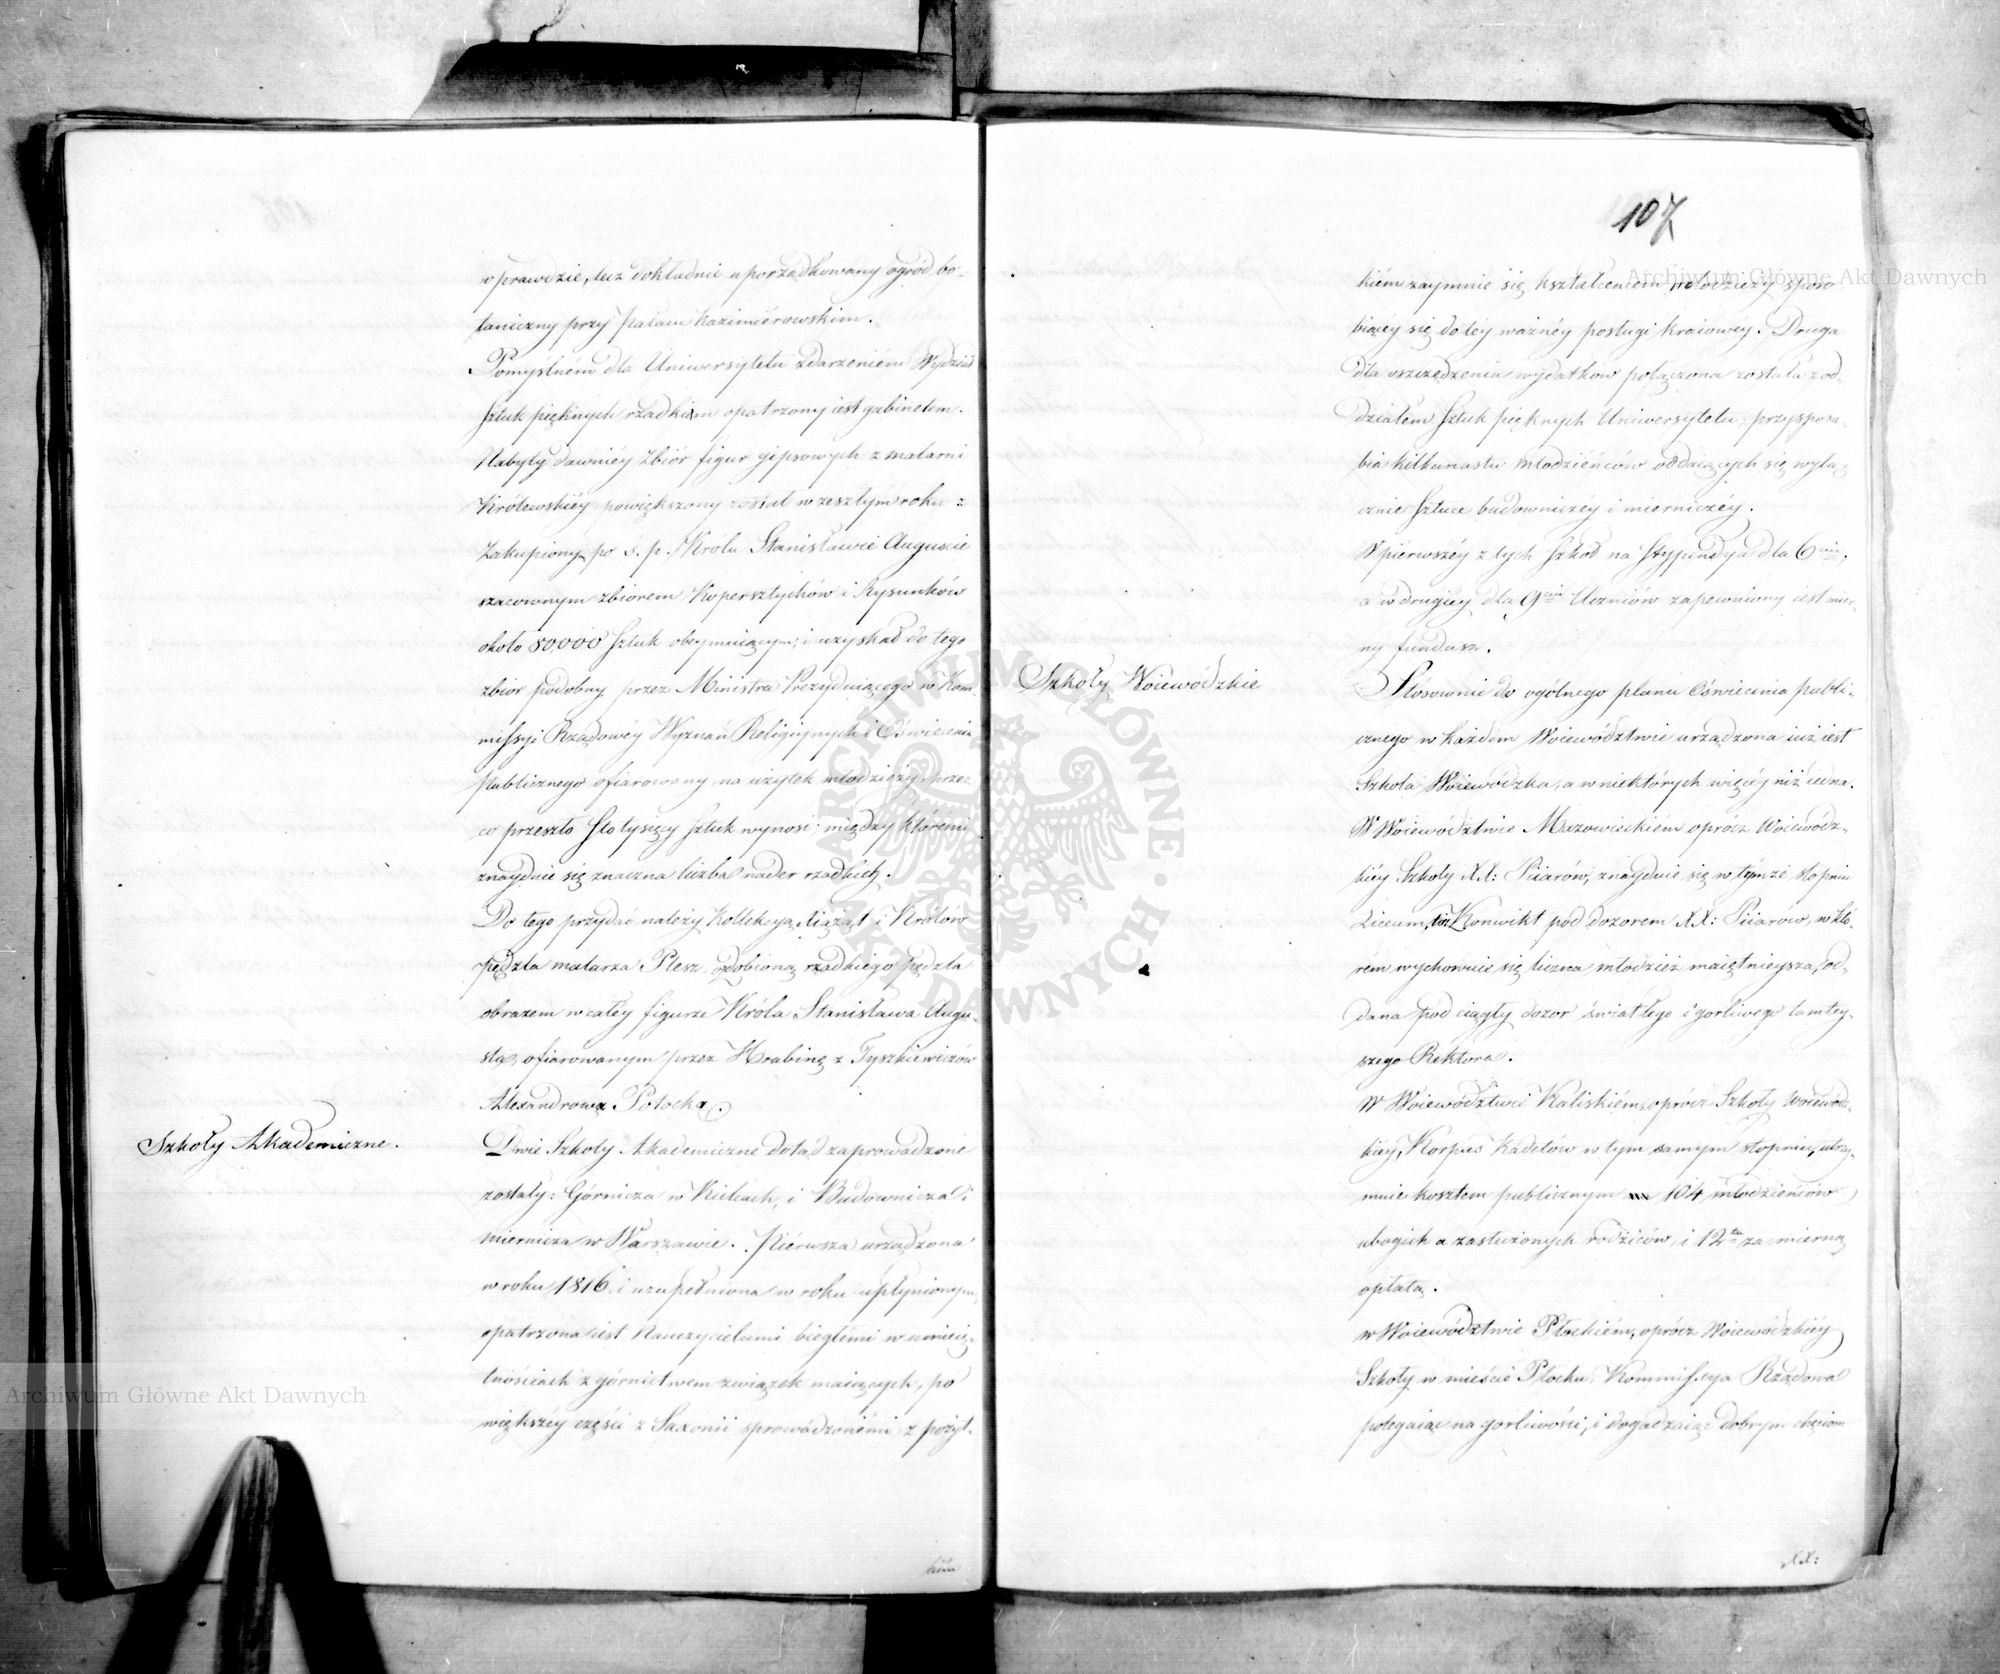 wprawdzie, lecz dokładnie uporządkowany ogród bo-
taniczny przy Pałacu Kazimiérowskim.
Pomyślném dla Uniwersytetu zdarzeniém Wydział
Sztuk pięknych rzadkiem opatrzony iest gabinetem.
Nabyty dawniéy zbiór figur gipsowych z malarni
Królewskiéy powiększony został w zeszłym roku
zakupionym po ś. p. Królu Stanisławie Auguście
szacownym zbiorem Kopersztychów i Rysunków
około 80,000 sztuk obeymuiącym; i uzyskał do tego
zbior podobny przez Ministra Prezyduiącego w Kom-
missyi Rządowéy Wyznań Religiynych i Oświecenia
publicznego ofiarowany na użytek młodzieży, przez
co przeszło Stotysięcy sztuk wynosi; między któremi
znayduie się znaczna liczba nader rzadkich.
Do tego przydać należy Kollekcyą Xiążąt i Królów
pędzla malarza Plesz, ozdobioną rzadkiego pędzla
obrazem w całey figurze Króla Stanisława Augu-
sta, ofiarowanym przez Hrabinę z Tyszkiewiczów
Alexandrową Potocką.
Szkoły Akademiczne.
Dwie Szkoły Akademiczne dotąd zaprowadzone
zostały: Górnicza w Kielcach, i Budownicza i
miernicza w Warszawie. Piérwsza urządzona
w roku 1816. i uzupełniona w roku upłynionym,
opatrzona iest Nauczycielami biegłémi w umieię-
tnościach z górnictwem związek maiących, po
większéy części z Saxonii sprowadzonémi, z pożyt-
kiem
107
kiém zaymuie się kształceniem młodzieży sposo
biącey się do téy ważnéy posługi kraiowéy. Druga
dla oszczędzenia wydatków połączona została z od-
działem Sztuk pięknych Uniwersytetu; przysposa-
bia kilkunastu młodzieńców oddaiących się wyłą-
cznie Sztuce budowniczéy i mierniczéy.
W pierwszéy z tych Szkół na Stypendya dla 6ciu,
a w drugiéy dla 9ciu Uczniów zapewniony iest mier-
ny fundusz.
Szkoły Woiewódzkie
Stósownie do ogólnego planu Oświecenia publi-
cznego w każdém Woiewództwie urządzona iuż iest
Szkoła Woiewódzka, a w niektórych więcéy niż iedna.
W Woiewództwie Mazowieckiém oprócz Woiewódz-
kiéy Szkoły XX: Piiarów, znayduie się w tymże stopniu
Liceum, tóż Konwikt pod dozorem XX: Piiarów, w któ-
rém wychowuie się liczna młodzież maiętnieysza, od-
dana pod ciągły dozor światłego i gorliwego tamtey-
szego Rektora.
W Woiewództwie Kaliskiém, oprócz Szkoły Woiewódz-
kiéy, Korpus Kadetów w tym samym stopniu, utrzy-
muie kosztem publicznym 104 młodzieńców
ubogich a zasłużonych rodziców, i 12tu za mierną
opłatą.
w Woiewództwie Płockiém, oprócz Woiewódzkiéy
Szkoły w mieście Płocku, Kommissya Rządowa
polegaiąc na gorliwości, i dogadzaiąc dobrym chęciom
XX:
Archiwum Główne Akt Dawnych
Archiwum Główne Akt Dawnych
ARCHIWUM GŁÓWNE AKT DAWNYCH